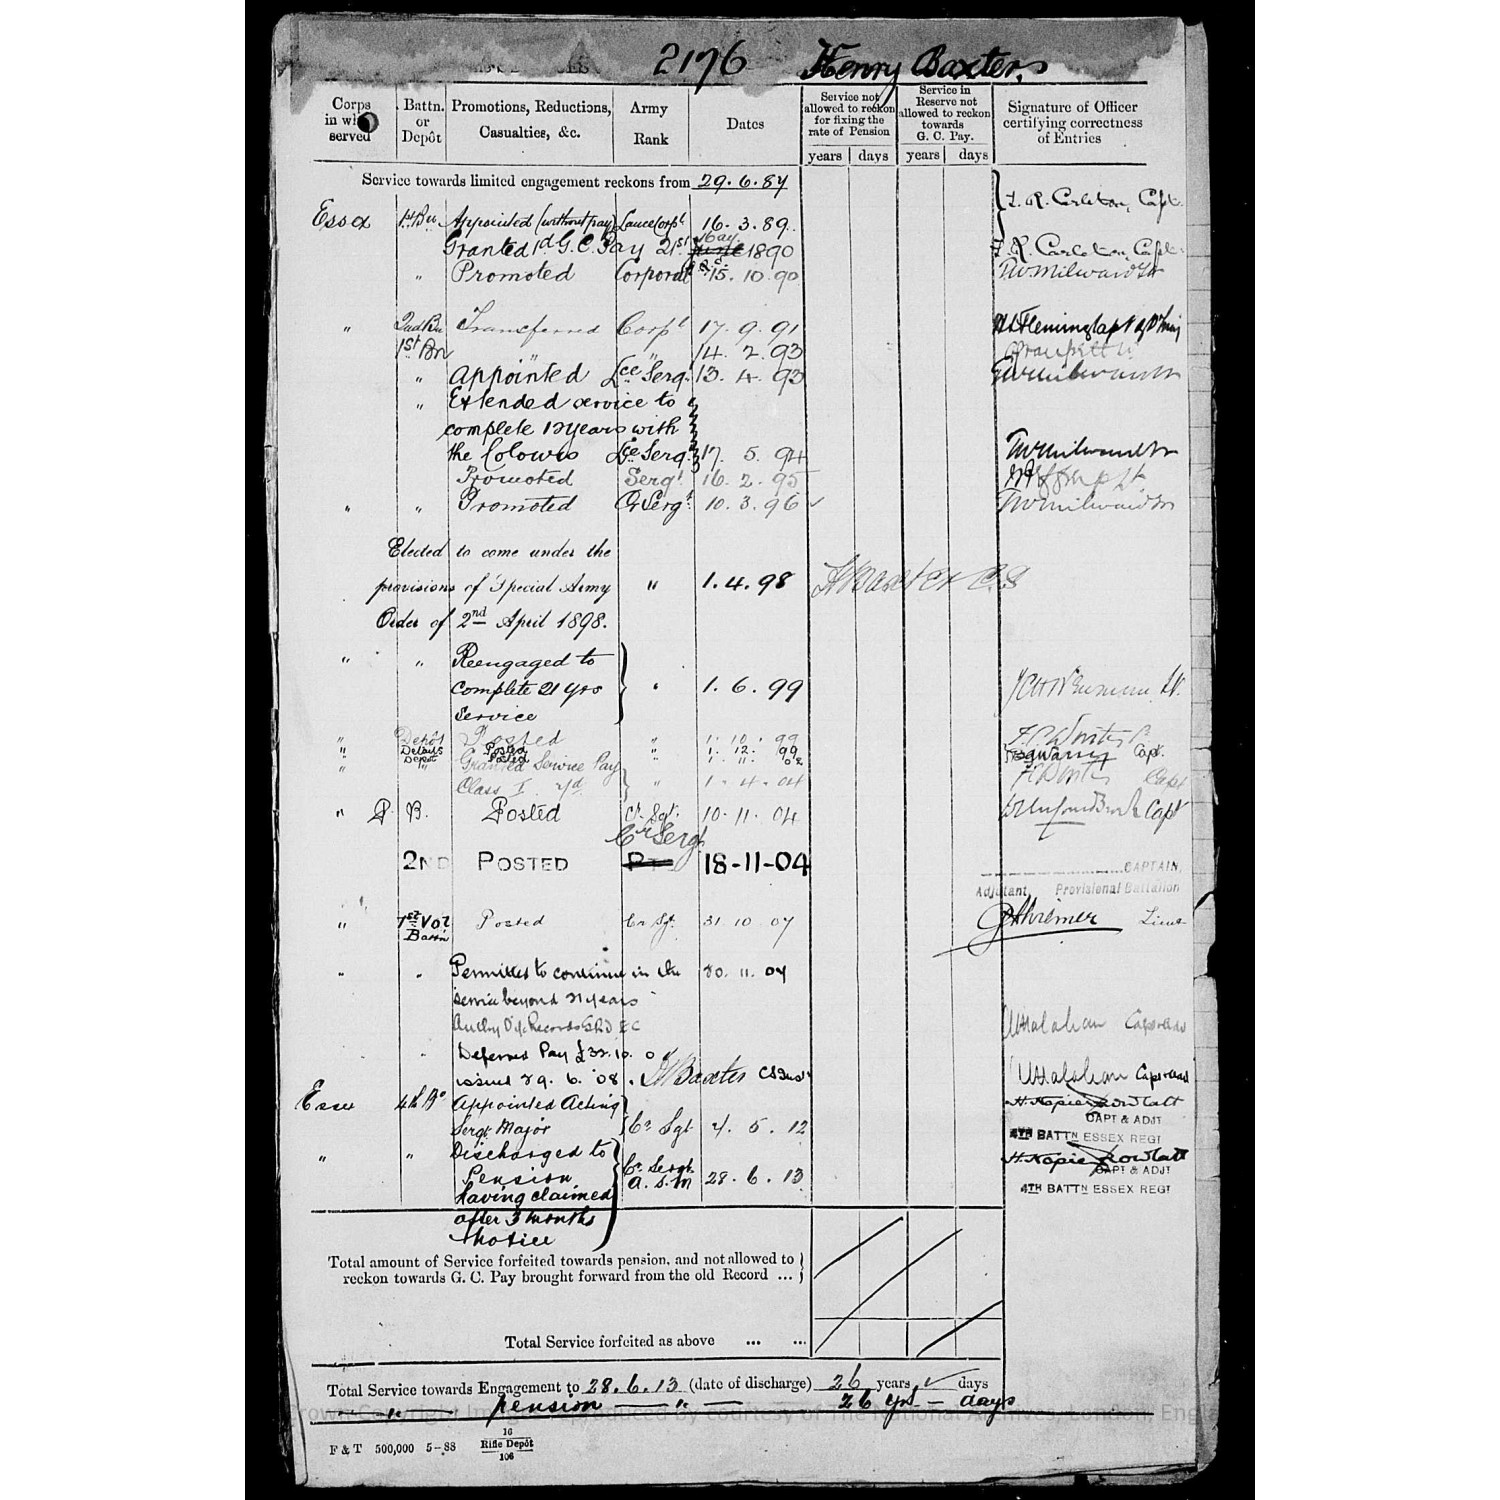 2176 Henry Baxter.
Corps in which served
Battn. or Depôt
Promotions, Reductions, Casualties, &c.
Army Rank
Dates
Service not allowed to reckon for fixing the rate of Pension
Service in Reserve not allowed to reckon towards G. C. Pay.
Signature of Officer certifying correctness of Entries
years days years days
Service towards limited engagement reckons from 29.6.87
Essex 1st Bn Appointed (without pay) Lance Corpl 16.3.89. F. R. Carleton, Capt.
Granted 1d G. C. Pay 21st May 1890 F. R. Carleton, Capt.
" Promoted Corporal 15.10.90 Milward
" 2nd Bn Transferred Corpl 17.9.91
1st Bn " " 14.2.93
" Appointed Lce Sergt 13.4.93
" Extended service to
complete 12 years with
the Colours Lce Sergt 17.5.94
Promoted Sergt 16.2.95
" " Promoted Cr Sergt 10.3.96
Elected to come under the
provisions of Special Army " 1.4.98 H Baxter C.S
Order of 2nd April 1898.
" " Reengaged to
complete 21 yrs " 1.6.99
service
" Depôt Posted " 1.10.99
" Details Posted " 1.12.99 Capt.
" Depot Posted " 1.11.02
" " Granted Service Pay
Class I " 1.4.04 Capt
" P. B. Posted Cr. Sgt. 10.11.04 Capt
Cr Sergt
2ND POSTED 18-11-04
CAPTAIN
Adjutant, Provisional Battalion
" 1st Vol Battn Posted Cr Sgt. 31.10.07 Lieut
" " Permitted to continue in the 30.11.07
service beyond 21 years
" Deferred Pay £32.10.0
issued 29.6.08. H Baxter
Essex 4th Bn Appointed Acting
Sergt Major Cr Sgt 4.5.12
CAPT & ADJT
4TH BATTN ESSEX REGT
" " Discharged to
Pension Cr Sergt A.S.M 28.6.13
having claimed
after 3 months
notice
CAPT & ADJT
4TH BATTN ESSEX REGT
Total amount of Service forfeited towards pension, and not allowed to
reckon towards G. C. Pay brought forward from the old Record ...
Total Service forfeited as above ... ...
Total Service towards Engagement to 28.6.13 (date of discharge) 26 years days
" " pension — " — 26 yrs — days
Crown Copyright Images reproduced by courtesy of The National Archives, London, England
F & T 500,000 5–88
16
Rifle Depôt
106